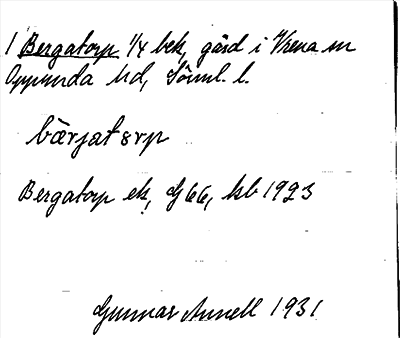 1 Bergatorp 1/4 bek, gård i Vrena sn
Oppunda hd, Söml. l.
bærjatorp
Bergatorp ek, G 66, kb 1923
Gunnar Annell 1931